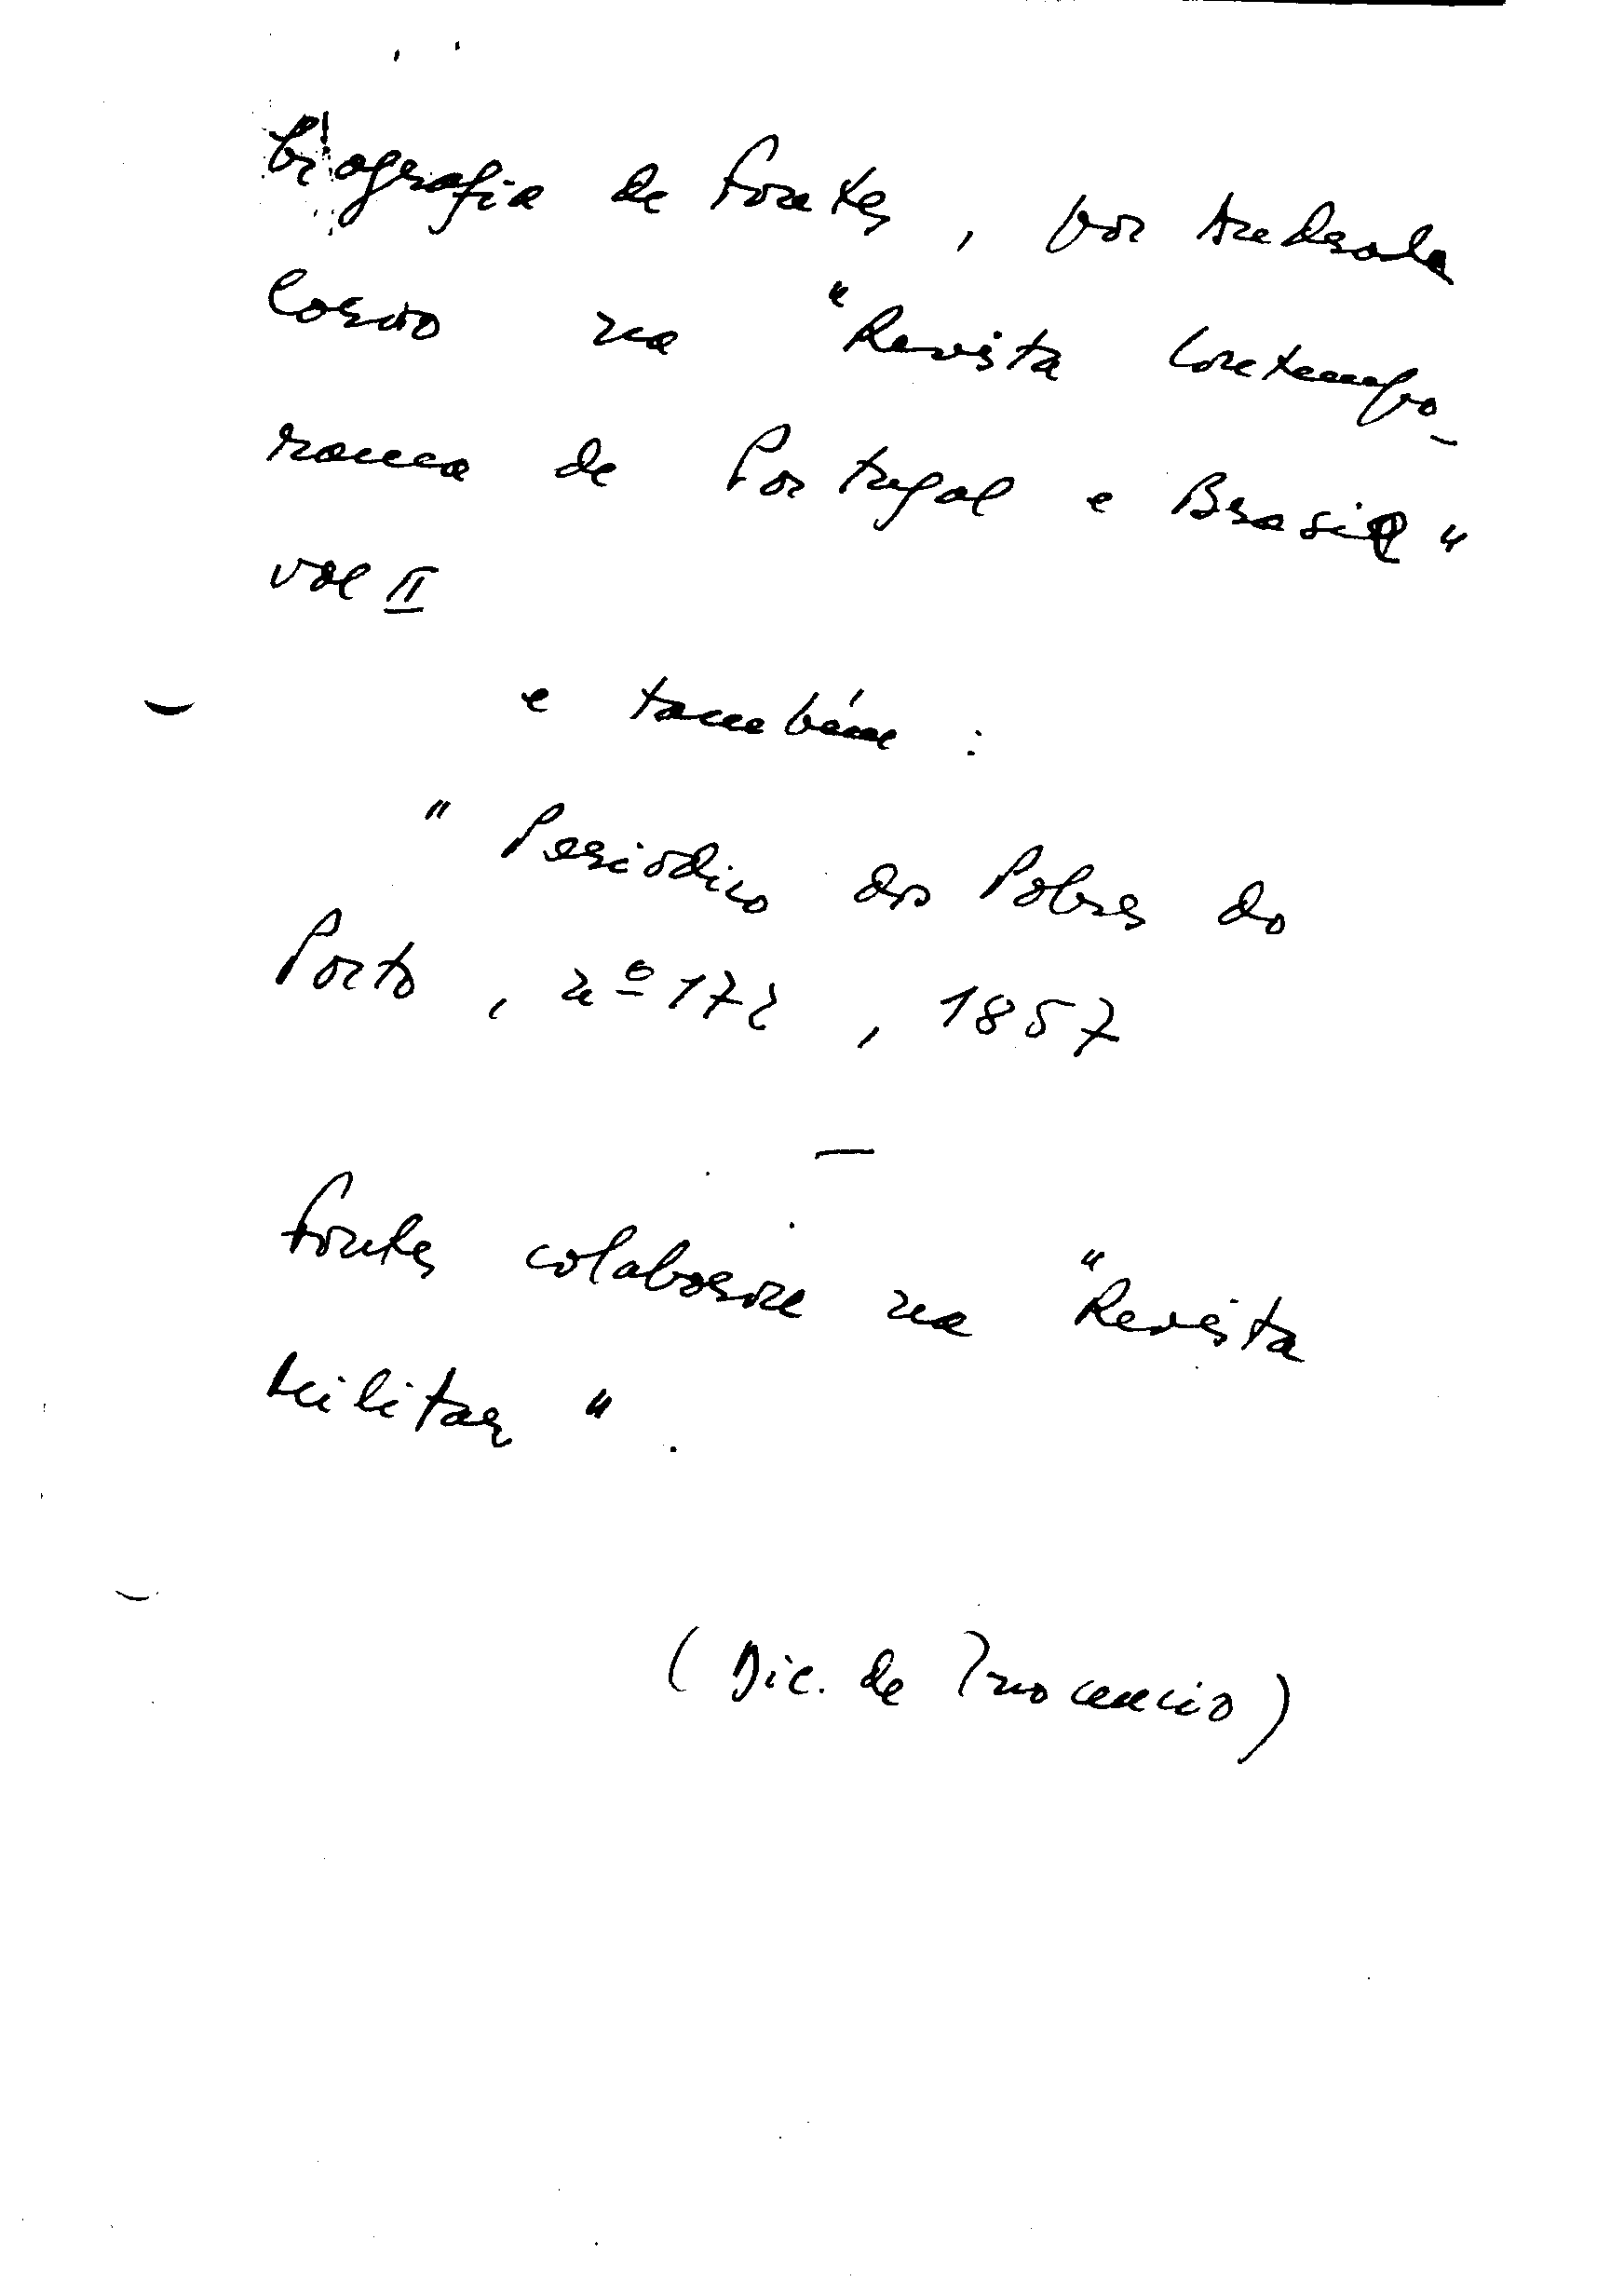 biografia de Fontes, por Andrade
Corvo na "Revista Contempo-
ranea de Portugal e Brasil"
vol II
e também :
" Periodico dos Pobres do
Porto, nº 172, 1857
—
Fontes colaborou na "Revista
Militar".
(Dic. de Inocencio)